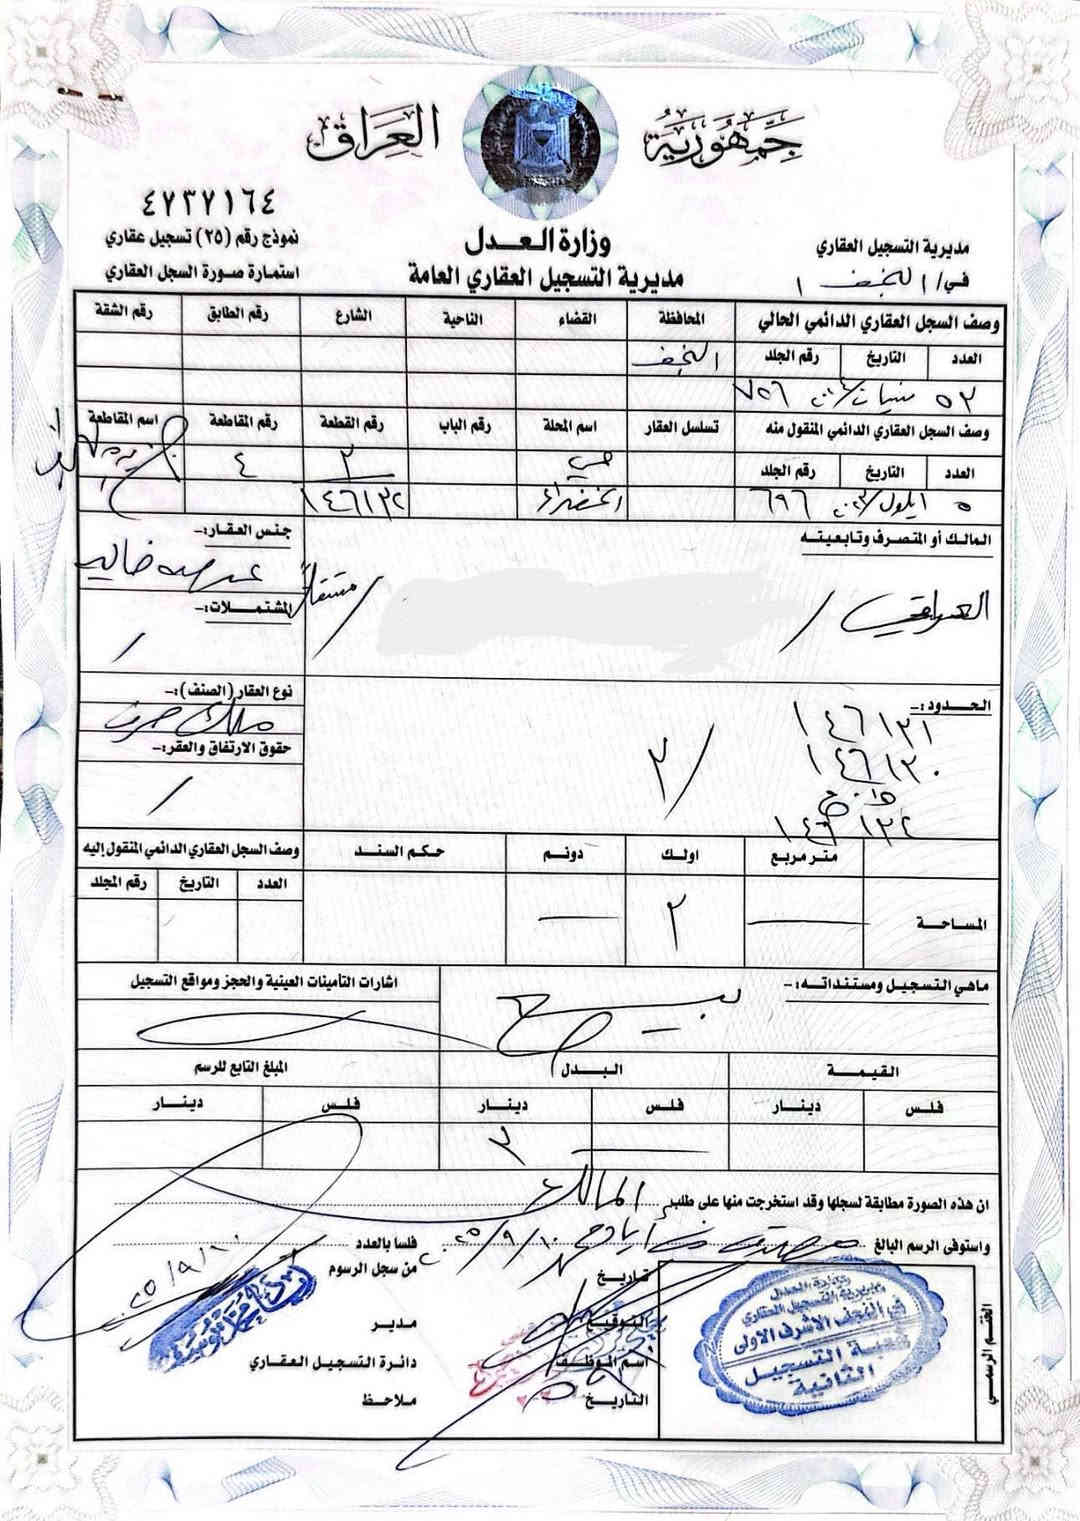 جمهورية العراق
٤٧٣٧١٦٤
وزارة العدل
مديرية التسجيل العقاري العامة
مديرية التسجيل العقاري
في/ النجف ١
نموذج رقم (٢٥) تسجيل عقاري
استمارة صورة السجل العقاري
وصف السجل العقاري الدائمي الحالي المحافظة القضاء الناحية الشارع رقم الطابق رقم الشقة
العدد التاريخ رقم الجلد النجف
٥٢ ٧٥٦
وصف السجل العقاري الدائمي المنقول منه تسلسل العقار اسم المحلة رقم الباب رقم القطعة رقم المقاطعة اسم المقاطعة
العدد التاريخ رقم الجلد حي ٣ ٤
٥ ايلول ٦٩٦ الخضراء ١٤٦١٣٢
المالك أو المتصرف وتابعيته جنس العقار:-
عرصه خاليه
العراقي / / مستقلاً
المشتملات:-
/
الحدود:- نوع العقار (الصنف):-
١٤٦١٣١ ملك صرف
١٤٦١٣٠ ٣/
حقوق الارتفاق والعقر:-
/
١٤٦١٣٤
متر مربع اولك دونم حكم السند وصف السجل العقاري الدائمي المنقول إليه
العدد التاريخ رقم المجلد
المساحة ٢
ماهي التسجيل ومستنداته:- اشارات التأمينات العينية والحجز ومواقع التسجيل
بيع
القيمة البدل المبلغ التابع للرسم
فلس دينار فلس دينار فلس دينار
٣
ان هذه الصورة مطابقة لسجلها وقد استخرجت منها على طلب المالك
واستوفى الرسم البالغ فلسا بالعدد
تاريخ ٢٠٢٥/٩/١٠ من سجل الرسوم
٢٠٢٥/٩/١٠
التوقيع مدير
اسم الموظف دائرة التسجيل العقاري
التاريخ ملاحظ
الختم الرسمي
وزارة العدل
مديرية التسجيل العقاري
في النجف الاشرف الاولى
شعبة التسجيل
الثانية